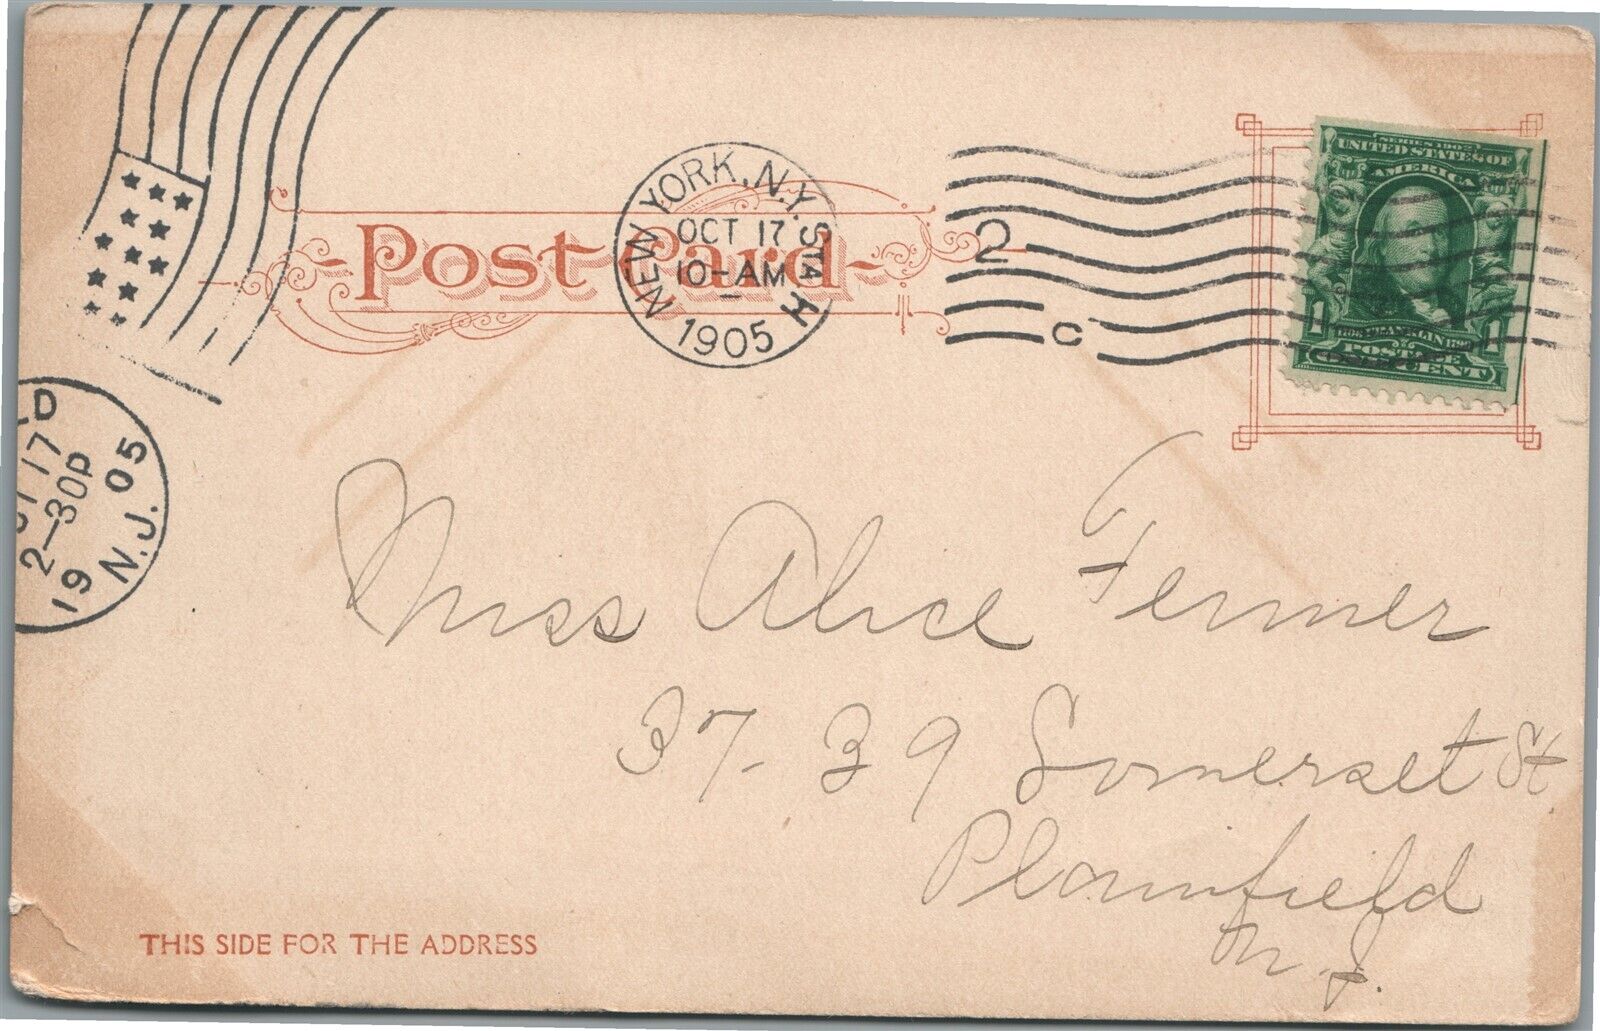 Post Card
NEW YORK, N.Y. STA H
OCT 17
10-AM
1905
2
C
SERIES 1902
UNITED STATES OF
AMERICA
1 1
POSTAGE
ONE CENT
LD
17
2-30P
19 N.J. 05
Miss Alice Fenner
37-39 Somerset St.
Plainfield
N.J.
THIS SIDE FOR THE ADDRESS